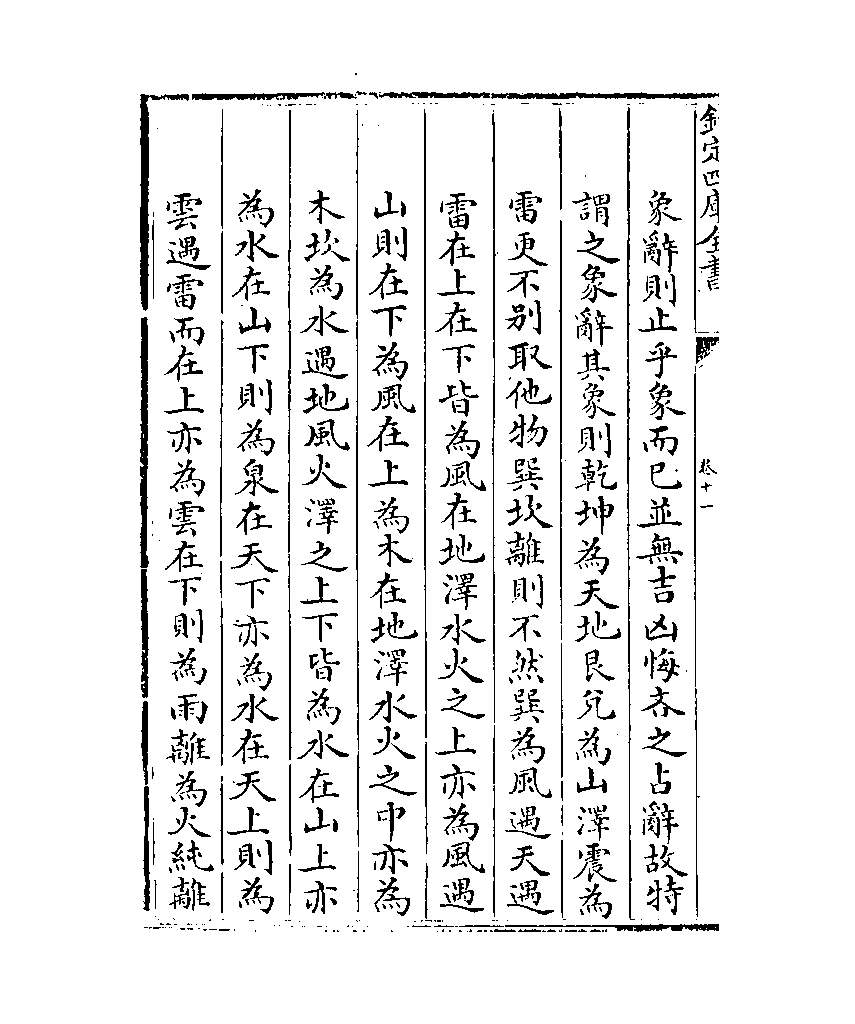 欽定四庫全書
卷十一
象辭則止乎象而已並無吉凶悔吝之占辭故特
謂之象辭其象則乾坤為天地艮兌為山澤震為
雷更不别取他物巽坎離則不然巽為風遇天遇
雷在上在下皆為風在地澤水火之上亦為風遇
山則在下為風在上為木在地澤水火之中亦為
木坎為水遇地風火澤之上下皆為水在山上亦
為水在山下則為泉在天下亦為水在天上則為
雲遇雷而在上亦為雲在下則為雨離為火純離